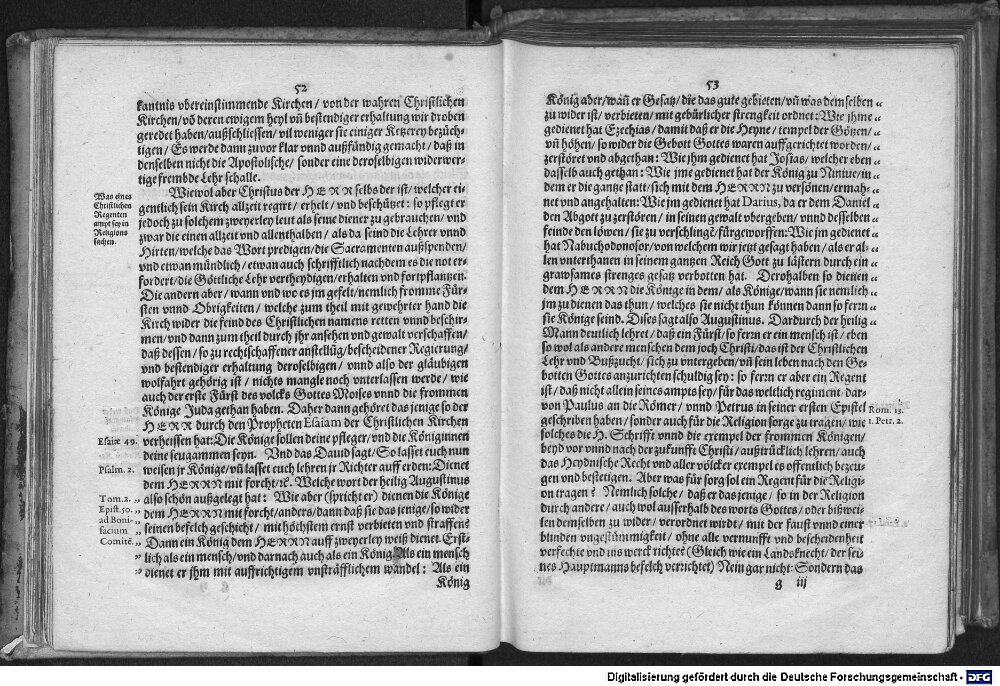 52
kantnis vbereinstimmende Kirchen / von der wahren Christlichen
Kirchen / võ deren ewigem heyl vñ bestendiger erhaltung wir droben
geredet haben / außschliessen / vil weniger sie einiger Ketzerey bezüch-
tigen / Es werde dann zuvor klar vnnd außfündig gemacht / daß in
denselben nicht die Apostolische / sonder eine deroselbigen widerwer-
tige frembde Lehr schalle.
Wiewol aber Christus der HERR selbs der ist / welcher ei-
gentlich sein Kirch allzeit regirt / erhelt / vnd beschützet: so pflegt er
jedoch zu solchem zweyerley leut als seine diener zu gebrauchen / vnnd
zwar die einen allzeit vnd allenthalben / als da seind die Lehrer vnnd
Hirten / welche das Wort predigen / die Sacramenten außspenden /
vnd etwan mündlich / etwan auch schrifftlich nachdem es die not er-
fordert / die Göttliche Lehr vertheydigen / erhalten vnd fortpflantzen.
Die andern aber / wann vnd wo es jm gefelt / nemlich fromme Für-
sten vnnd Obrigkeiten / welche zum theil mit gewehrter hand die
Kirch wider die feind des Christlichen namens retten vnnd beschir-
men / vnd dann zum theil durch jhr ansehen vnd gewalt verschaffen /
daß dessen / so zu rechtschaffener anstellũg / bescheidener Regierung /
vnd bestendiger erhaltung deroselbigen / vnnd also der gläubigen
wolfahrt gehörig ist / nichts mangle noch vnterlassen werde / wie
auch der erste Fürst des volcks Gottes Moises vnnd die frommen
Könige Juda gethan haben. Daher dann gehöret das jenige so der
HERR durch den Propheten Esaiam der Christlichen Kirchen
verheissen hat: Die Könige sollen deine pfleger / vnd die Königinnen
deine seugammen seyn. Vnd das Dauid sagt / So lasset euch nun
weisen jr Könige / vñ lasset euch lehren jr Richter auff erden: Dienet
dem HERRN mit forcht / ꝛc. Welche wort der heilig Augustinus
also schön außgelegt hat: Wie aber (spricht er) dienen die Könige
dem HERRN mit forcht / anders / dann daß sie das jenige / so wider
seinen befelch geschicht / mit höchstem ernst verbieten vnd straffen?
Dann ein König dem HERRN auff zweyerley weiß dienet. Erst-
lich als ein mensch / vnd darnach auch als ein König. Als ein mensch
dienet er jhm mit auffrichtigem vnsträfflichem wandel: Als ein
König
Was eines
Christlichen
Regenten
ampt sey in
Religions
sachen.
Esaiæ 49.
Psalm. 2.
Tom. 2.
Epist. 50.
ad Boni-
facium
Comitẽ.
53
König aber / wañ er Gesatz / die das gute gebieten / vñ was demselben
zu wider ist / verbieten / mit gebürlicher strengkeit ordnet: Wie jhme
gedienet hat Ezechias / damit daß er die Heyne / tempel der Götzen /
vñ höhen / so wider die Gebott Gottes waren auffgerichtet worden /
zerstöret vnd abgethan: Wie jhm gedienet hat Josias / welcher eben
dasselb auch gethan: Wie jme gedienet hat der König zu Niniue / in
dem er die gantze statt / sich mit dem HERRN zu versönen / ermah-
net vnd angehalten: Wie jm gedienet hat Darius, da er dem Daniel
den Abgott zu zerstören / in seinen gewalt vbergeben / vnnd desselben
feinde den löwen / sie zu verschlingẽ / fürgeworffen: Wie jm gedienet
hat Nabuchodonosor / von welchem wir jetzt gesagt haben / als er al-
len vnterthanen in seinem gantzen Reich Gott zu lästern durch ein
grawsames strenges gesatz verbotten hat. Derohalben so dienen
dem HERRN die Könige in dem / als Könige / wann sie nemlich
jm zu dienen das thun / welches sie nicht thun können dann so fern
sie Könige seind. Dises sagt also Augustinus. Dardurch der heilig
Mann deutlich lehret / daß ein Fürst / so fern er ein mensch ist / eben
so wol als andere menschen dem joch Christi / das ist der Christlichen
Lehr vnd Bußzucht / sich zu untergeben / vñ sein leben nach den Ge-
botten Gottes anzurichten schuldig sey: so fern er aber ein Regent
ist / daß nicht allein seines ampts sey / für das weltlich regiment / dar-
von Paulus an die Römer / vnnd Petrus in seiner ersten Epistel
geschriben haben / sonder auch für die Religion sorge zu tragen / wie
solches die H. Schrifft vnnd die exempel der frommen Königen /
beyd vor vnnd nach der zukunfft Christi / außtrücklich lehren / auch
das Heydnische Recht vnd aller völcker exempel es offentlich bezeu-
gen vnd bestetigen. Aber was für sorg sol ein Regent für die Religi-
on tragen? Nemlich solche / daß er das jenige / so in der Religion
durch andere / auch wol ausserhalb des worts Gottes / oder bißwei-
len demselben zu wider / verordnet wirdt / mit der faust vnnd einer
blinden vngestümmigkeit / ohne alle vernunfft vnd bescheidenheit
verfechte vnd ins werck richte? (Gleich wie ein Landsknecht / der sei-
nes Hauptmanns befelch verrichtet) Nein gar nicht: Sondern das
g iij
Rom. 13.
1. Petr. 2.
Digitalisierung gefördert durch die Deutsche Forschungsgemeinschaft - DFG